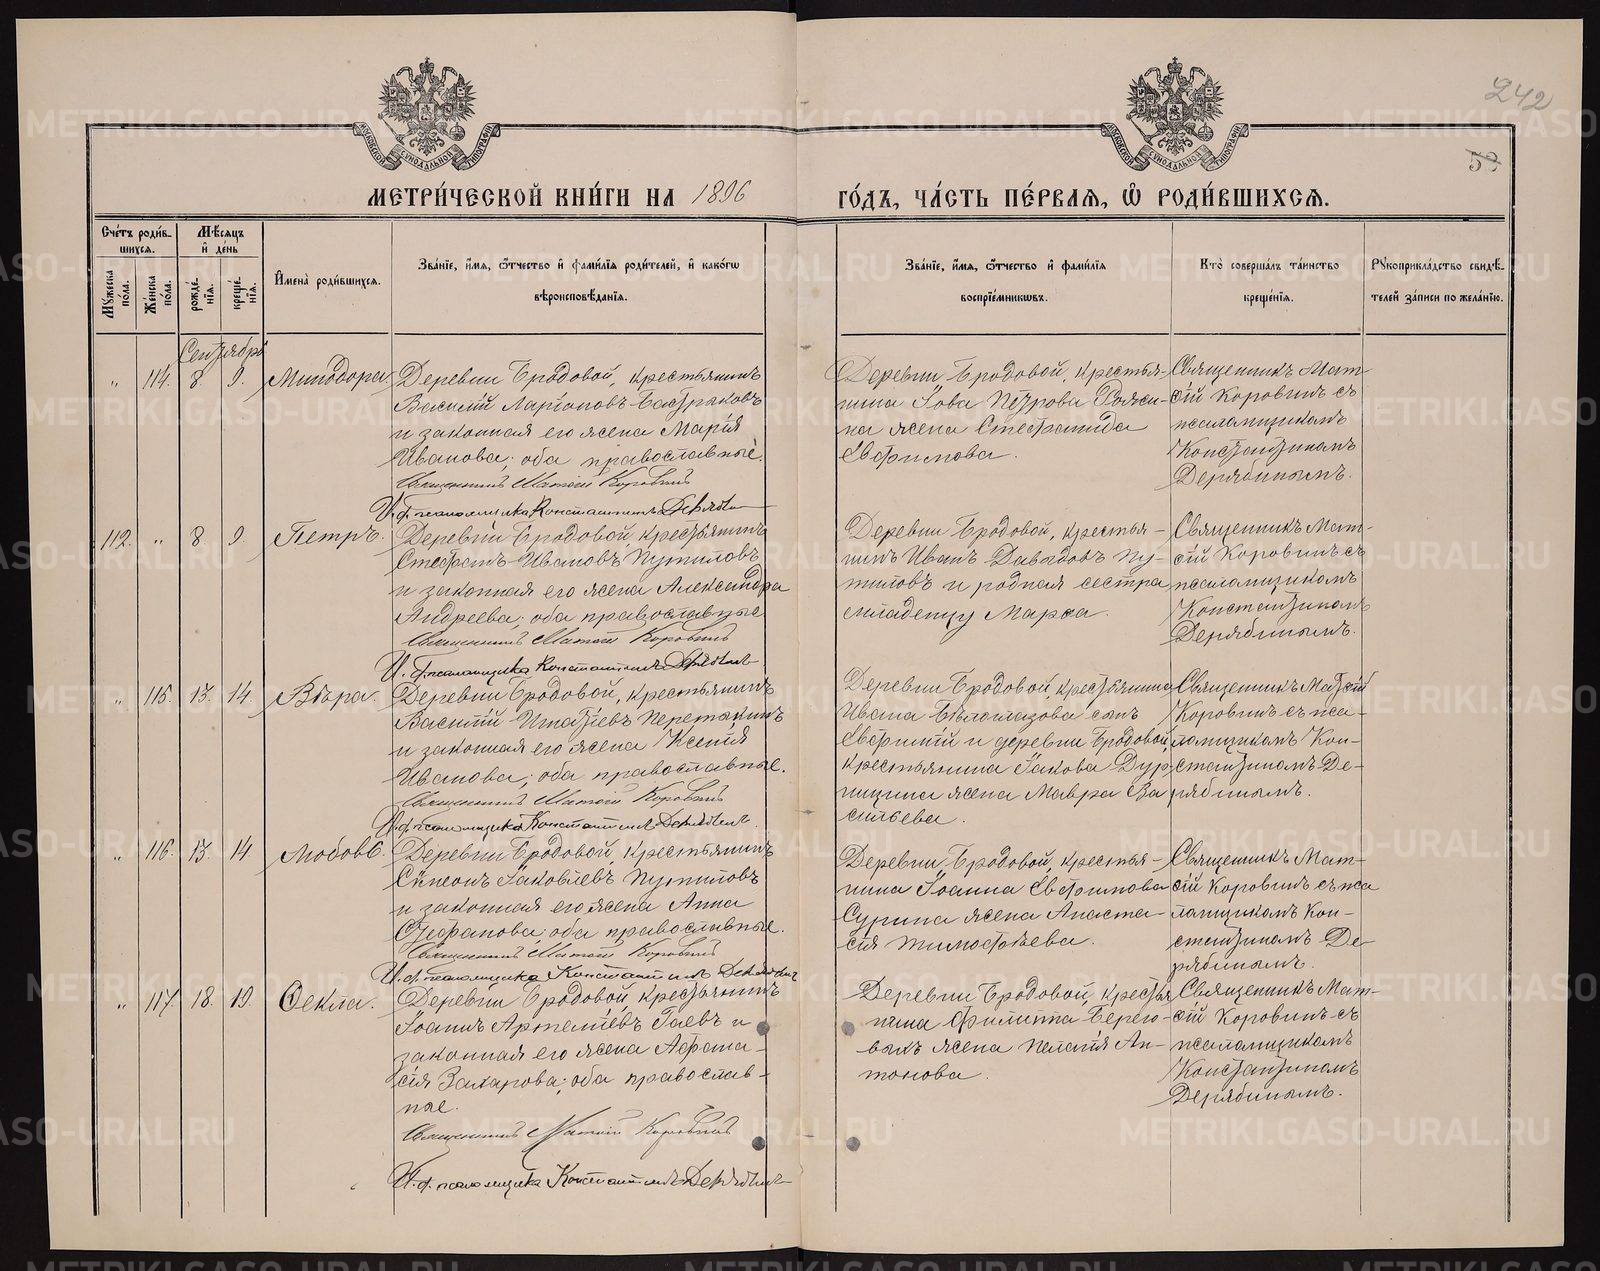 242
59
МОСКОВСКОЙ СѴНОДАЛЬНОЙ ТИПОГРАФІИ
МОСКОВСКОЙ СѴНОДАЛЬНОЙ ТИПОГРАФІИ
МЕТРИ́ЧЕСКОЙ КНИ́ГИ НА 1896 ГО́ДЪ, ЧА́СТЬ ПЕ́РВАЯ, Ѽ РОДИ́ВШИХСЯ.
Сче́тъ роди́вшихся.
Му́жеска по́ла.
Же́нска по́ла.
Мѣ́сяцъ и҆ де́нь
рожде́нїя.
креще́нїя.
И҆мена̀ роди́вшихся.
Зва́нїе, и҆́мя, ѻ҆́тчество и҆ фами́лїя роди́телей, и҆ како́гѡ вѣроисповѣ́данїя.
Зва́нїе, и҆́мя, ѻ҆́тчество и҆ фами́лїя воспрїе́мникѡвъ.
Кто̀ соверша́лъ та́инство креще́нїя.
Рꙋкоприкла́дство свидѣ́телей за́писи по жела́нїю.
Сентябрь
„ 114. 8 9. Минодора.
Деревни Бродовой, крестьянинъ
Василій Ларіоновъ Бастраковъ
и законная его жена Марія
Иванова; оба православные.
Священникъ Матѳій Коровинъ
И. ф. псаломщика Константинъ Дерябинъ
Деревни Бродовой, крестья-
нина Іова Петрова
жена Стефанида
Евфимова.
Священникъ Мат-
ѳій Коровинъ съ
псаломщикомъ
Константиномъ
Дерябинымъ.
112. „ 8 9 Петръ.
Деревни Бродовой крестьянинъ
Стефанъ Ивановъ Путиловъ
и законная его жена Александра
Андреева; оба православные
Священникъ Матѳій Коровинъ
И. ф. псаломщика Константинъ Дерябинъ
Деревни Бродовой, крестья-
нинъ Иванъ Давыдовъ Пу-
тиловъ и родная сестра
младенцу Марѳа.
Священникъ Мат-
ѳій Коровинъ съ
псаломщикомъ
Константиномъ
Дерябинымъ.
„ 115. 13. 14. Вѣра.
Деревни Бродовой, крестьянинъ
Василій Игнатіевъ Перетыкинъ
и законная его жена Ксенія
Иванова; оба православные.
Священникъ Матѳій Коровинъ
И. ф. псаломщика Константинъ Дерябинъ
Деревни Бродовой, крестьянина
Ивана Бѣлоглазова сынъ
Евфимій и деревни Бродовой,
крестьянина Іакова Дур-
ницина жена Мавра Ва
сильева.
Священникъ Матѳій
Коровинъ съ пса-
ломщикомъ Кон-
стантиномъ Де-
рябинымъ.
„ 116. 13. 14. Любовь.
Деревни Бродовой, крестьянинъ
Сѵмеонъ Іаковлевъ Путиловъ
и законная его жена Анна
Стефанова; оба православные.
Священникъ Матѳій Коровинъ
И. ф. псаломщика Константинъ Дерябинъ
Деревни Бродовой, крестья-
нина Іоанна Евфимова
Сурина жена Анаста-
сія Тимоѳеева.
Священникъ Мат-
ѳій Коровинъ съ пса
ломщикомъ Кон-
стантиномъ Де-
рябинымъ.
„ 117. 18. 19. Ѳекла.
Деревни Бродовой, крестьянинъ
Іоаннъ Артеміевъ Гаевъ и
законная его жена Аѳана-
сія Захарова; оба православ-
ные.
Священникъ Матѳій Коровинъ
И. ф. псаломщика Константинъ Дерябинъ
Деревни Бродовой, крестья
нина Филиппа Берего-
выхъ жена Пелагія Ан-
тонова.
Священникъ Мат-
ѳій Коровинъ съ
псаломщикомъ
Константиномъ
Дерябинымъ.
METRIKI.GASO-URAL.RU